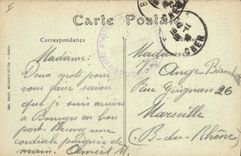 Carte Postale
Correspondance
Madame
Deux mots pour
vous faire savoir
que je suis arrivé
à Bourges en bon
port. Recevez une
cordiale poignée de
main. 
Madame
Ange
Rue Grignan 26
Marseille
(B-du-Rhône)
CHER